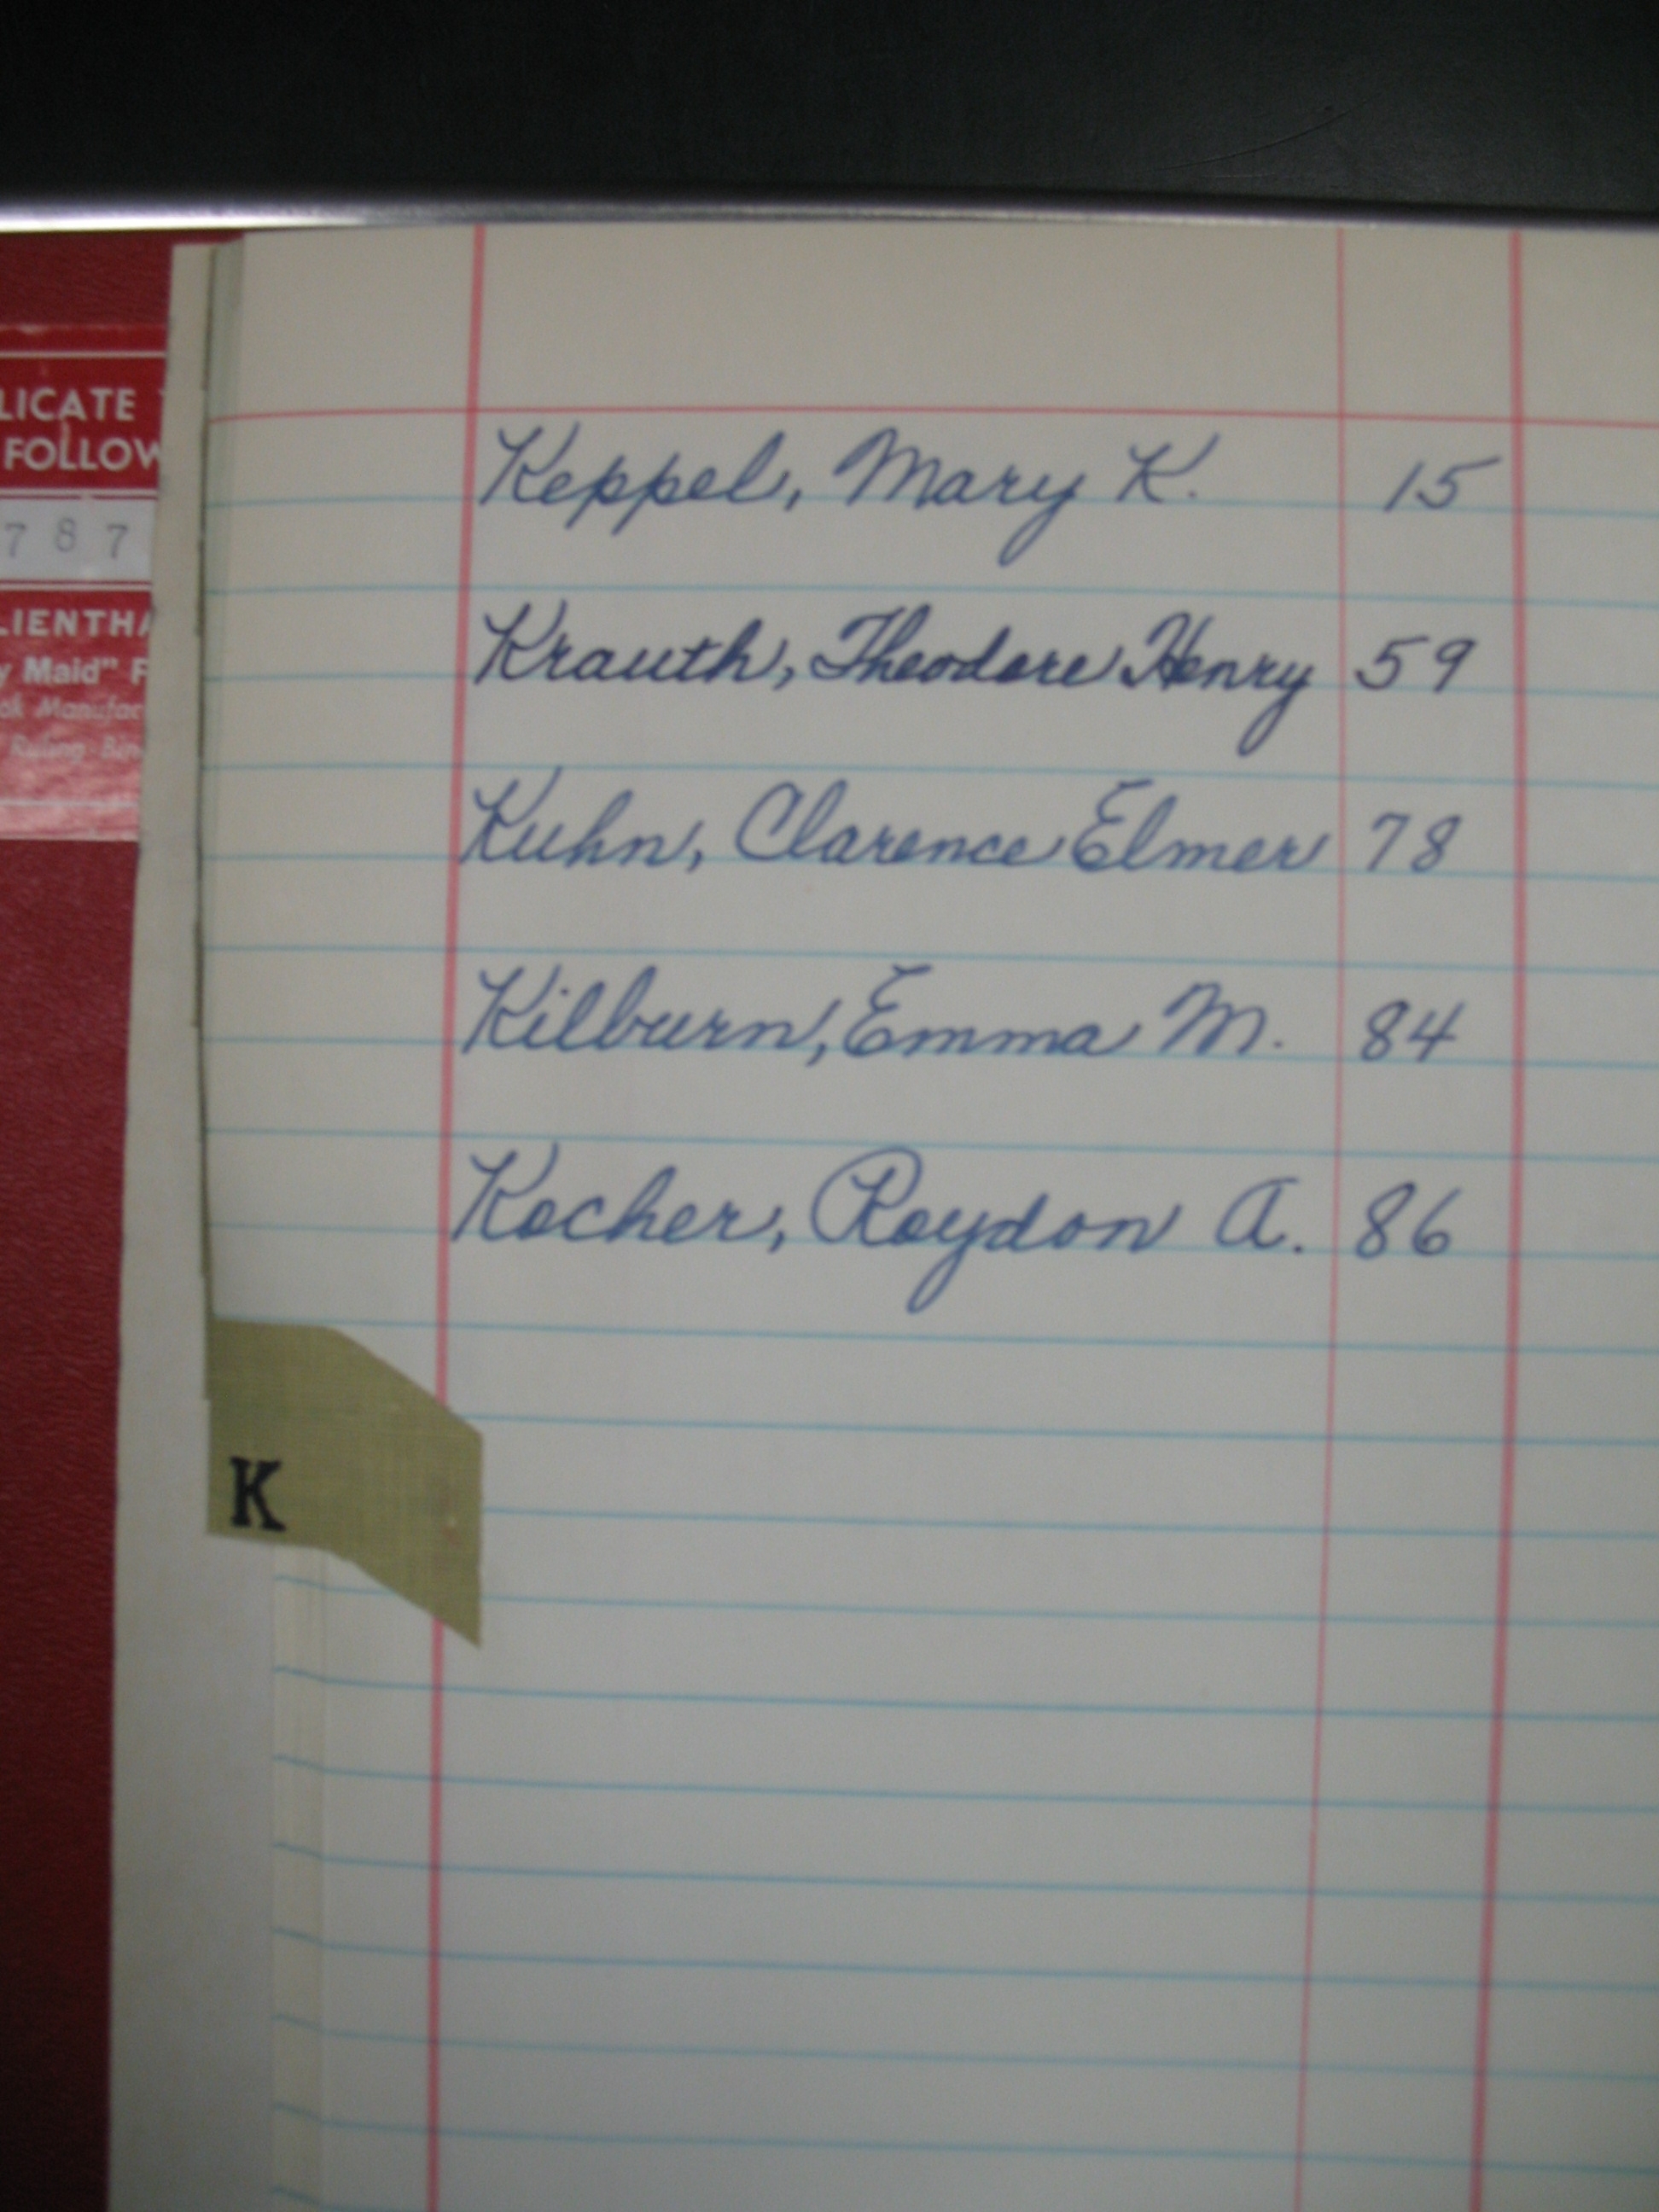 LICATE
FOLLOW
7 8 7
LIENTHA
y Maid" F
ok Manufac
Ruling - Bin
Keppel, Mary K. 15
Krauth, Theodore Henry 59
Kuhn, Clarence Elmer 78
Kilburn, Emma M. 84
Kocher, Roydon A. 86
K